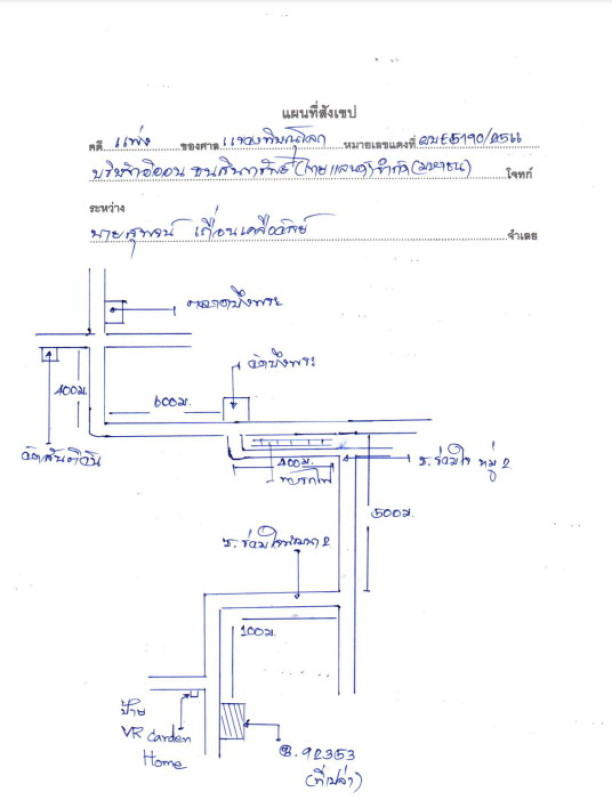 แผนที่สังเขป
คดี แพ่ง ของศาล แขวงพิษณุโลก หมายเลขแดงที่ ผบE5190/2566
บริษัทอิออน ธนสินทรัพย์ (ไทยแลนด์) จำกัด (มหาชน) โจทก์
ระหว่าง
นายสุพจน์ จำเลย
ตลาดบึงพระ
วัดบึงพระ
400ม.
600ม.
วัดสันติวัน
400ม.
ทางรถไฟ
ซ.ร่วมใจ หมู่ 2
500ม.
ซ.ร่วมใจพัฒนา 2
100ม.
ป้าย
VR Garden
Home
ฉ. 92353
(ที่เปล่า)